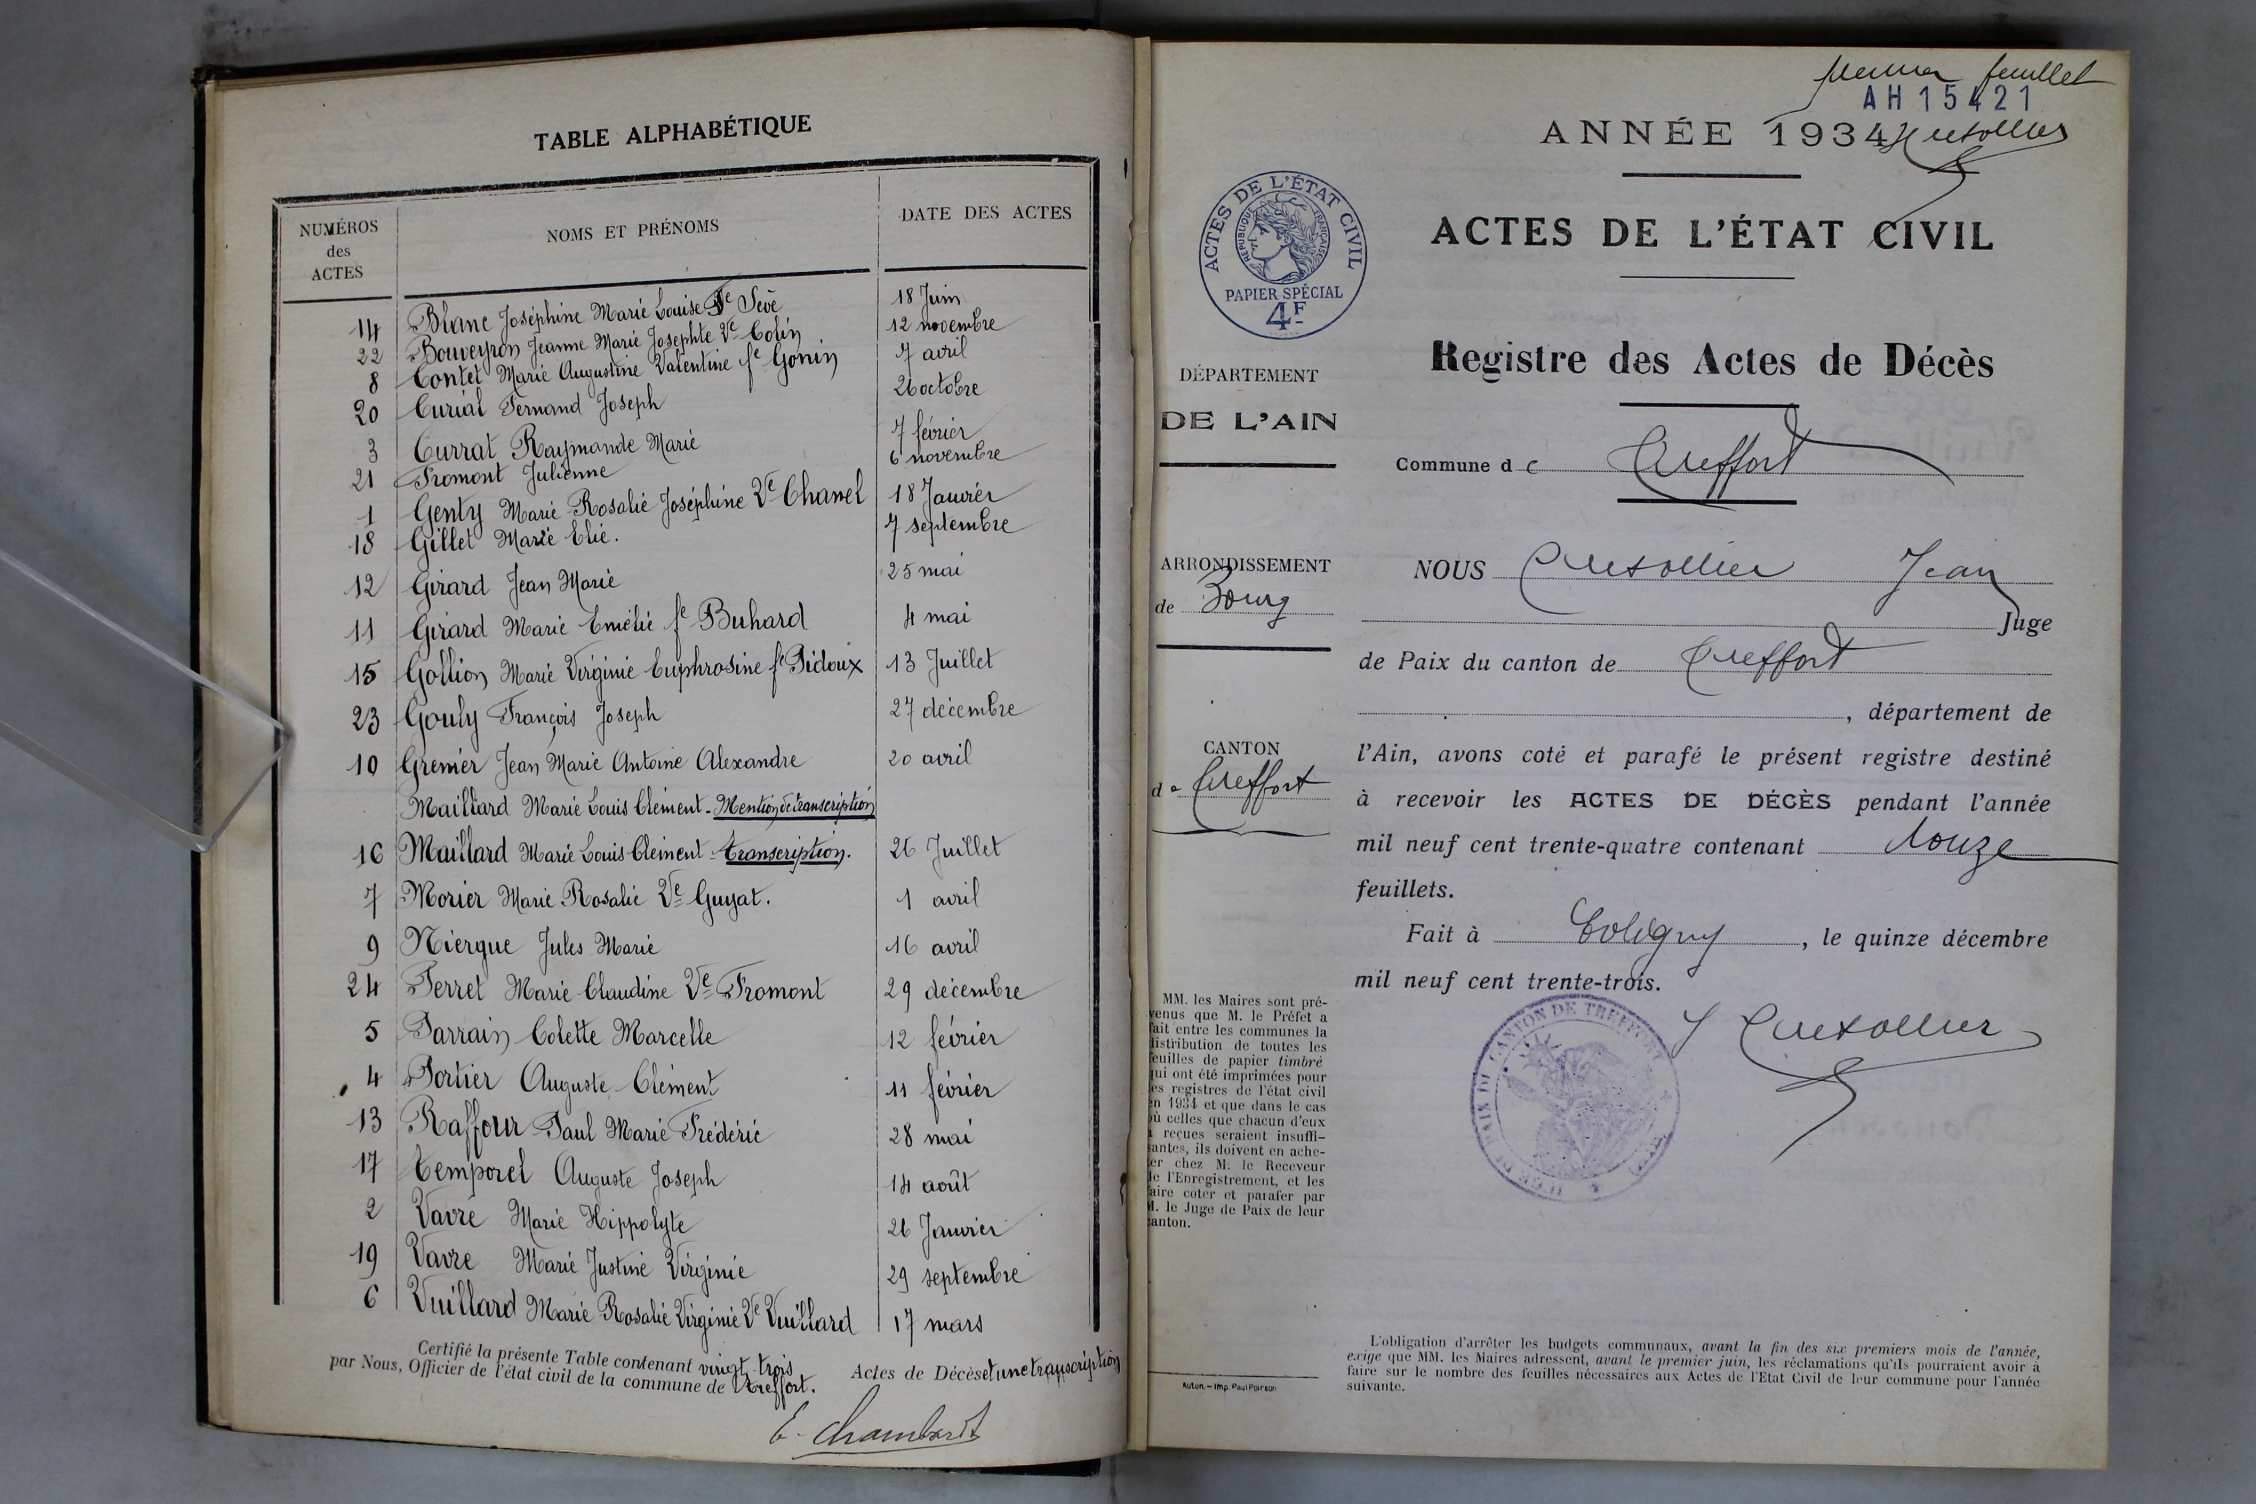 TABLE ALPHABÉTIQUE
NUMÉROS des ACTES
NOMS ET PRÉNOMS
DATE DES ACTES
14 Blanc Joséphine Marie Louise fe Sève 18 Juin
22 Bouveyron Jeanne Marie Josephte Ve Colin 12 novembre
8 Contet Marie Augustine Valentine fe Gonin 7 avril
20 Curial Fernand Joseph 26 octobre
3 Currat Raymonde Marie 7 février
21 Fromont Julienne 6 novembre
1 Genty Marie Rosalie Joséphine Ve Chanel 18 Janvier
18 Gillet Marie Elie. 7 septembre
12 Girard Jean Marie 25 mai
11 Girard Marie Emélie fe Buhard 4 mai
15 Gollion Marie Virginie Euphrosine fe Pidoux 13 Juillet
23 Gouly François Joseph 27 décembre
10 Grenier Jean Marie Antoine Alexandre 20 avril
Maillard Marie Louis Clément - Mention de transcription
16 Maillard Marie Louis Clément - transcription. 26 Juillet
7 Morier Marie Rosalie Ve Guyat. 1 avril
9 Niergue Jules Marie 16 avril
24 Perret Marie Claudine Ve Fromont 29 décembre
5 Parrain Colette Marcelle 12 février
4 Portier Auguste Clément 11 février
13 Raffour Paul Marie Frédéric 28 mai
17 Temporel Auguste Joseph 14 août
2 Vavre Marie Hippolyte 26 Janvier
19 Vavre Marie Justine Virginie 29 septembre
6 Vuillard Marie Rosalie Virginie Ve Vuillard 17 mars
Certifié la présente Table contenant vingt-trois Actes de Décès et une transcription
par Nous, Officier de l'état civil de la commune de Treffort.
E. Chambard
premier feuillet
AH15421
ANNÉE 1934
ACTES DE L'ÉTAT CIVIL
RÉPUBLIQUE FRANÇAISE
PAPIER SPÉCIAL
4F
ACTES DE L'ÉTAT CIVIL
Registre des Actes de Décès
DÉPARTEMENT
DE L'AIN
Commune de Treffort
ARRONDISSEMENT
de Bourg
CANTON
de Treffort
NOUS Jean
Juge
de Paix du canton de Treffort
, département de
l'Ain, avons coté et parafé le présent registre destiné
à recevoir les ACTES DE DÉCÈS pendant l'année
mil neuf cent trente-quatre contenant douze
feuillets.
Fait à Coligny, le quinze décembre
mil neuf cent trente-trois.
CANTON DE TREFFORT
MM. les Maires sont pré-
venus que M. le Préfet a
fait entre les communes la
distribution de toutes les
feuilles de papier timbré
qui ont été imprimées pour
les registres de l'état civil
en 1934 et que dans le cas
où celles que chacun d'eux
a reçues seraient insuffi-
santes, ils doivent en ache-
ter chez M. le Receveur
de l'Enregistrement, et les
faire coter et parafer par
M. le Juge de Paix de leur
canton.
Autun. — Imp. Paul Poirson
L'obligation d'arrêter les budgets communaux, avant la fin des six premiers mois de l'année,
exige que MM. les Maires adressent, avant le premier juin, les réclamations qu'ils pourraient avoir à
faire sur le nombre des feuilles nécessaires aux Actes de l'Etat Civil de leur commune pour l'année
suivante.